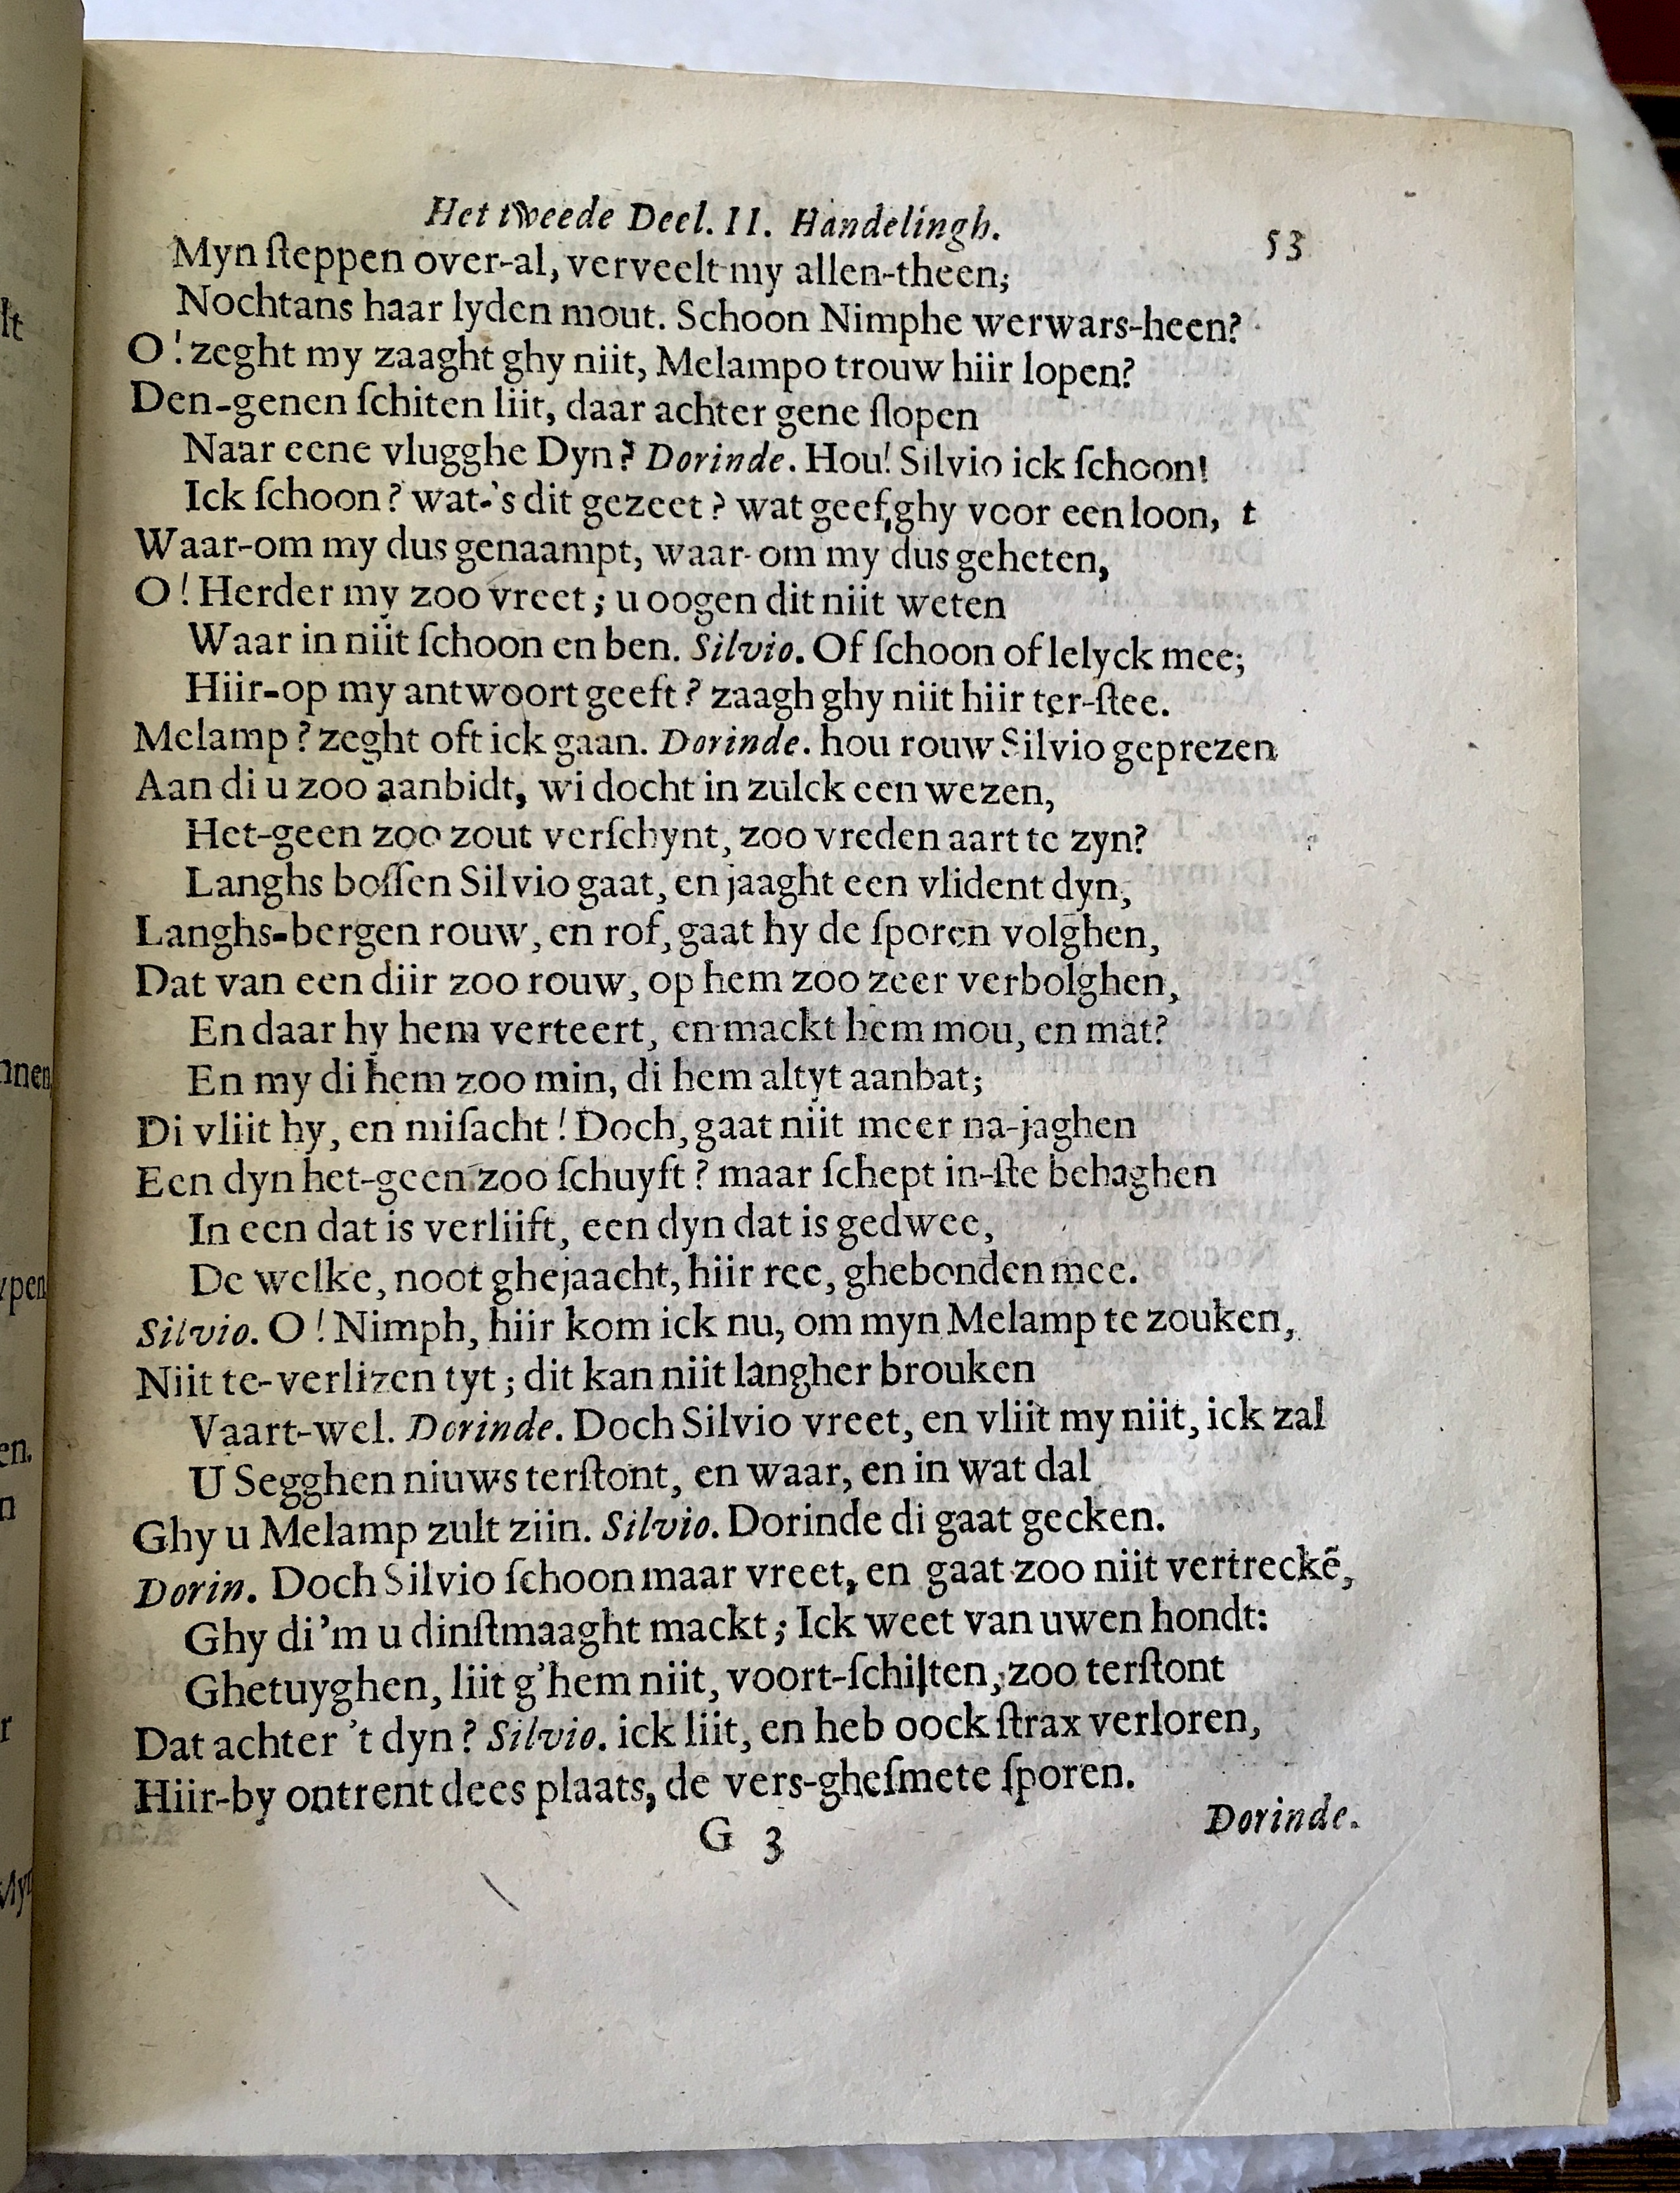 Het tweede Deel. II. Handelingh.
53
Myn ſteppen over-al, verveelt my allen-theen;
Nochtans haar lyden mout. Schoon Nimphe werwars-heen?
O! zeght my zaaght ghy niit, Melampo trouw hiir lopen?
Den-genen ſchiten liit, daar achter gene ſlopen
Naar eene vlugghe Dyn? Dorinde. Hou! Silvio ick ſchoon!
Ick ſchoon? wat-'s dit gezeet? wat geef,ghy voor een loon, t
Waar-om my dus genaampt, waar-om my dus geheten,
O! Herder my zoo vreet; u oogen dit niit weten
Waar in niit ſchoon en ben. Silvio. Of ſchoon of lelyck mee;
Hiir-op my antwoort geeft? zaagh ghy niit hiir ter-ſtee.
Melamp? zeght oft ick gaan. Dorinde. hou rouw Silvio geprezen
Aan di u zoo aanbidt, wi docht in zulck een wezen,
Het-geen zoo zout verſchynt, zoo vreden aart te zyn?
Langhs boſſen Silvio gaat, en jaaght een vlident dyn,
Langhs-bergen rouw, en rof, gaat hy de ſporen volghen,
Dat van een diir zoo rouw, op hem zoo zeer verbolghen,
En daar hy hem verteert, en mackt hem mou, en mat?
En my di hem zoo min, di hem altyt aanbat;
Di vliit hy, en miſacht! Doch, gaat niit meer na-jaghen
Een dyn het-geen zoo ſchuyft? maar ſchept in-ſte behaghen
In een dat is verliift, een dyn dat is gedwee,
De welke, noot ghejaacht, hiir ree, ghebonden mee.
Silvio. O! Nimph, hiir kom ick nu, om myn Melamp te zouken,
Niit te-verlizen tyt; dit kan niit langher brouken
Vaart-wel. Dorinde. Doch Silvio vreet, en vliit my niit, ick zal
U Segghen niuws terſtont, en waar, en in wat dal
Ghy u Melamp zult ziin. Silvio. Dorinde di gaat gecken.
Dorin. Doch Silvio ſchoon maar vreet, en gaat zoo niit vertreckē,
Ghy di'm u dinſtmaaght mackt; Ick weet van uwen hondt:
Ghetuyghen, liit g'hem niit, voort-ſchi|ten, zoo terſtont
Dat achter 't dyn? Silvio. ick liit, en heb oock ſtrax verloren,
Hiir-by ontrent dees plaats, de vers-gheſmete ſporen.
G 3
Dorinde.